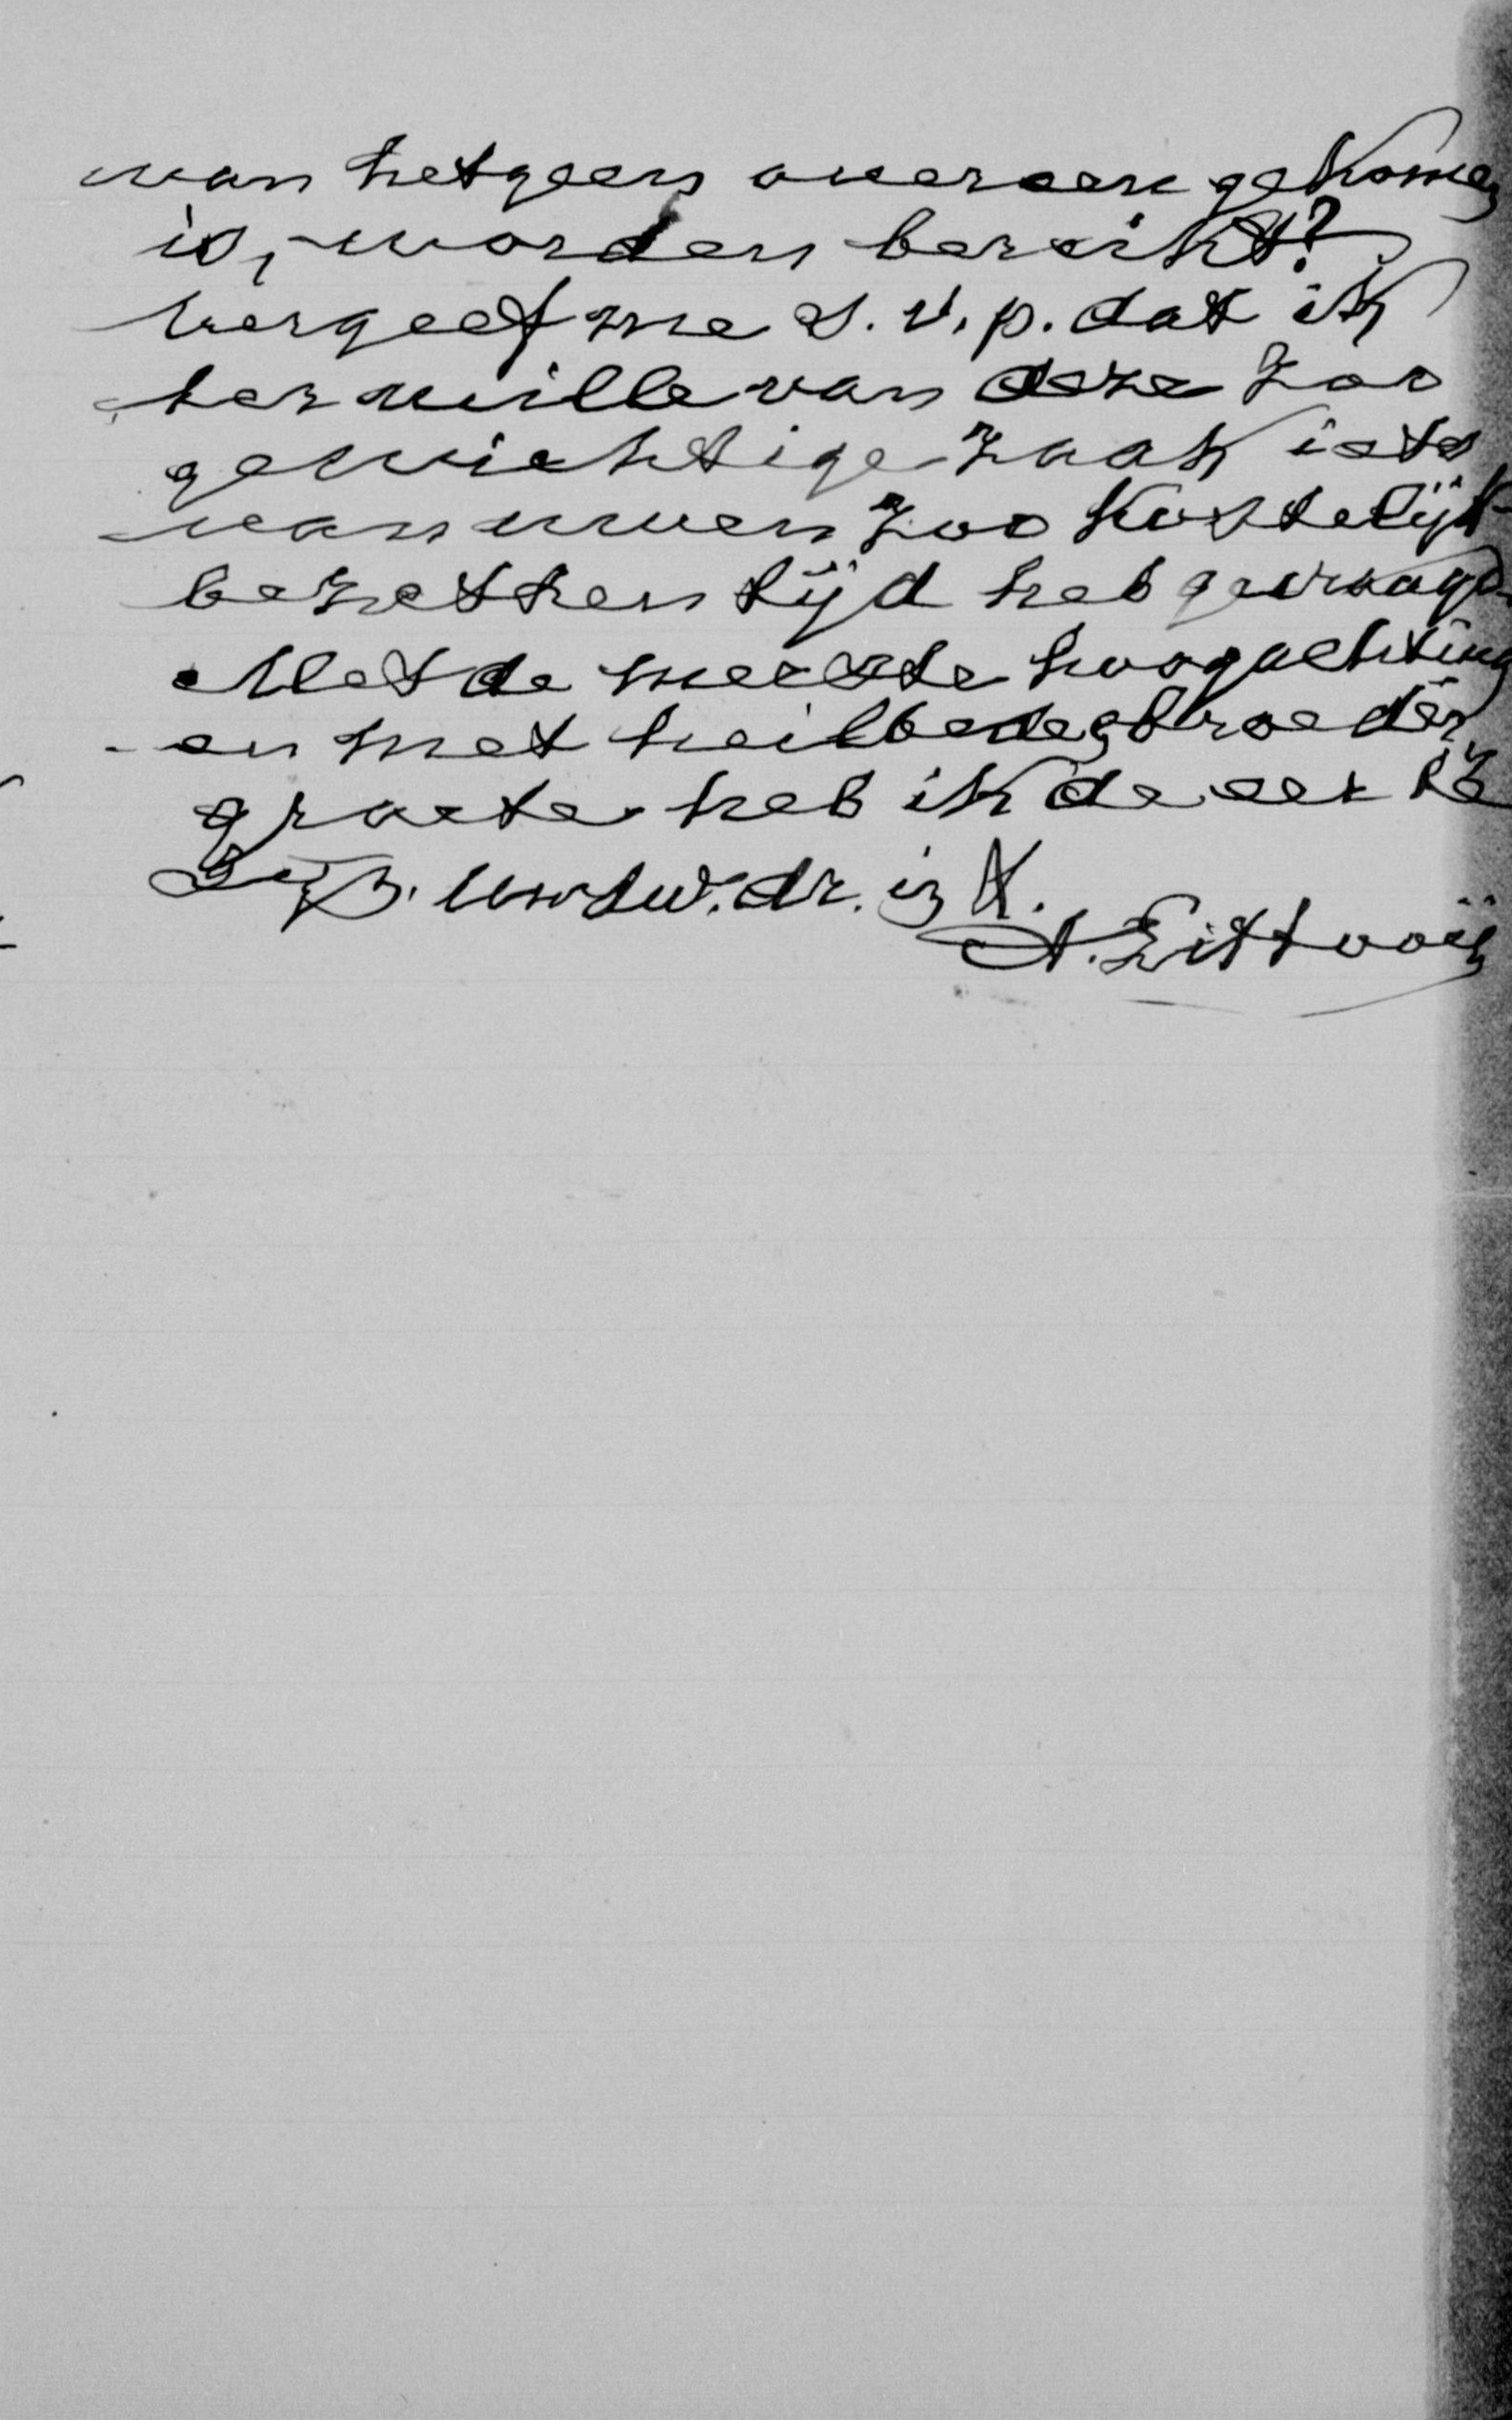 van hetgeen overeengekomen
is, worden bereikt?
Vergeef me s.v.p. dat ik
ter wille van deze zoo
gewichtige zaak iets
van uwen zoo kostelijk
bezetten tijd heb gevraagd.
Met de meeste hoogachting
en met heilbede & broeder
groete heb ik de eer te
zijn. Uw dw. dr. in X.
A. Littooij